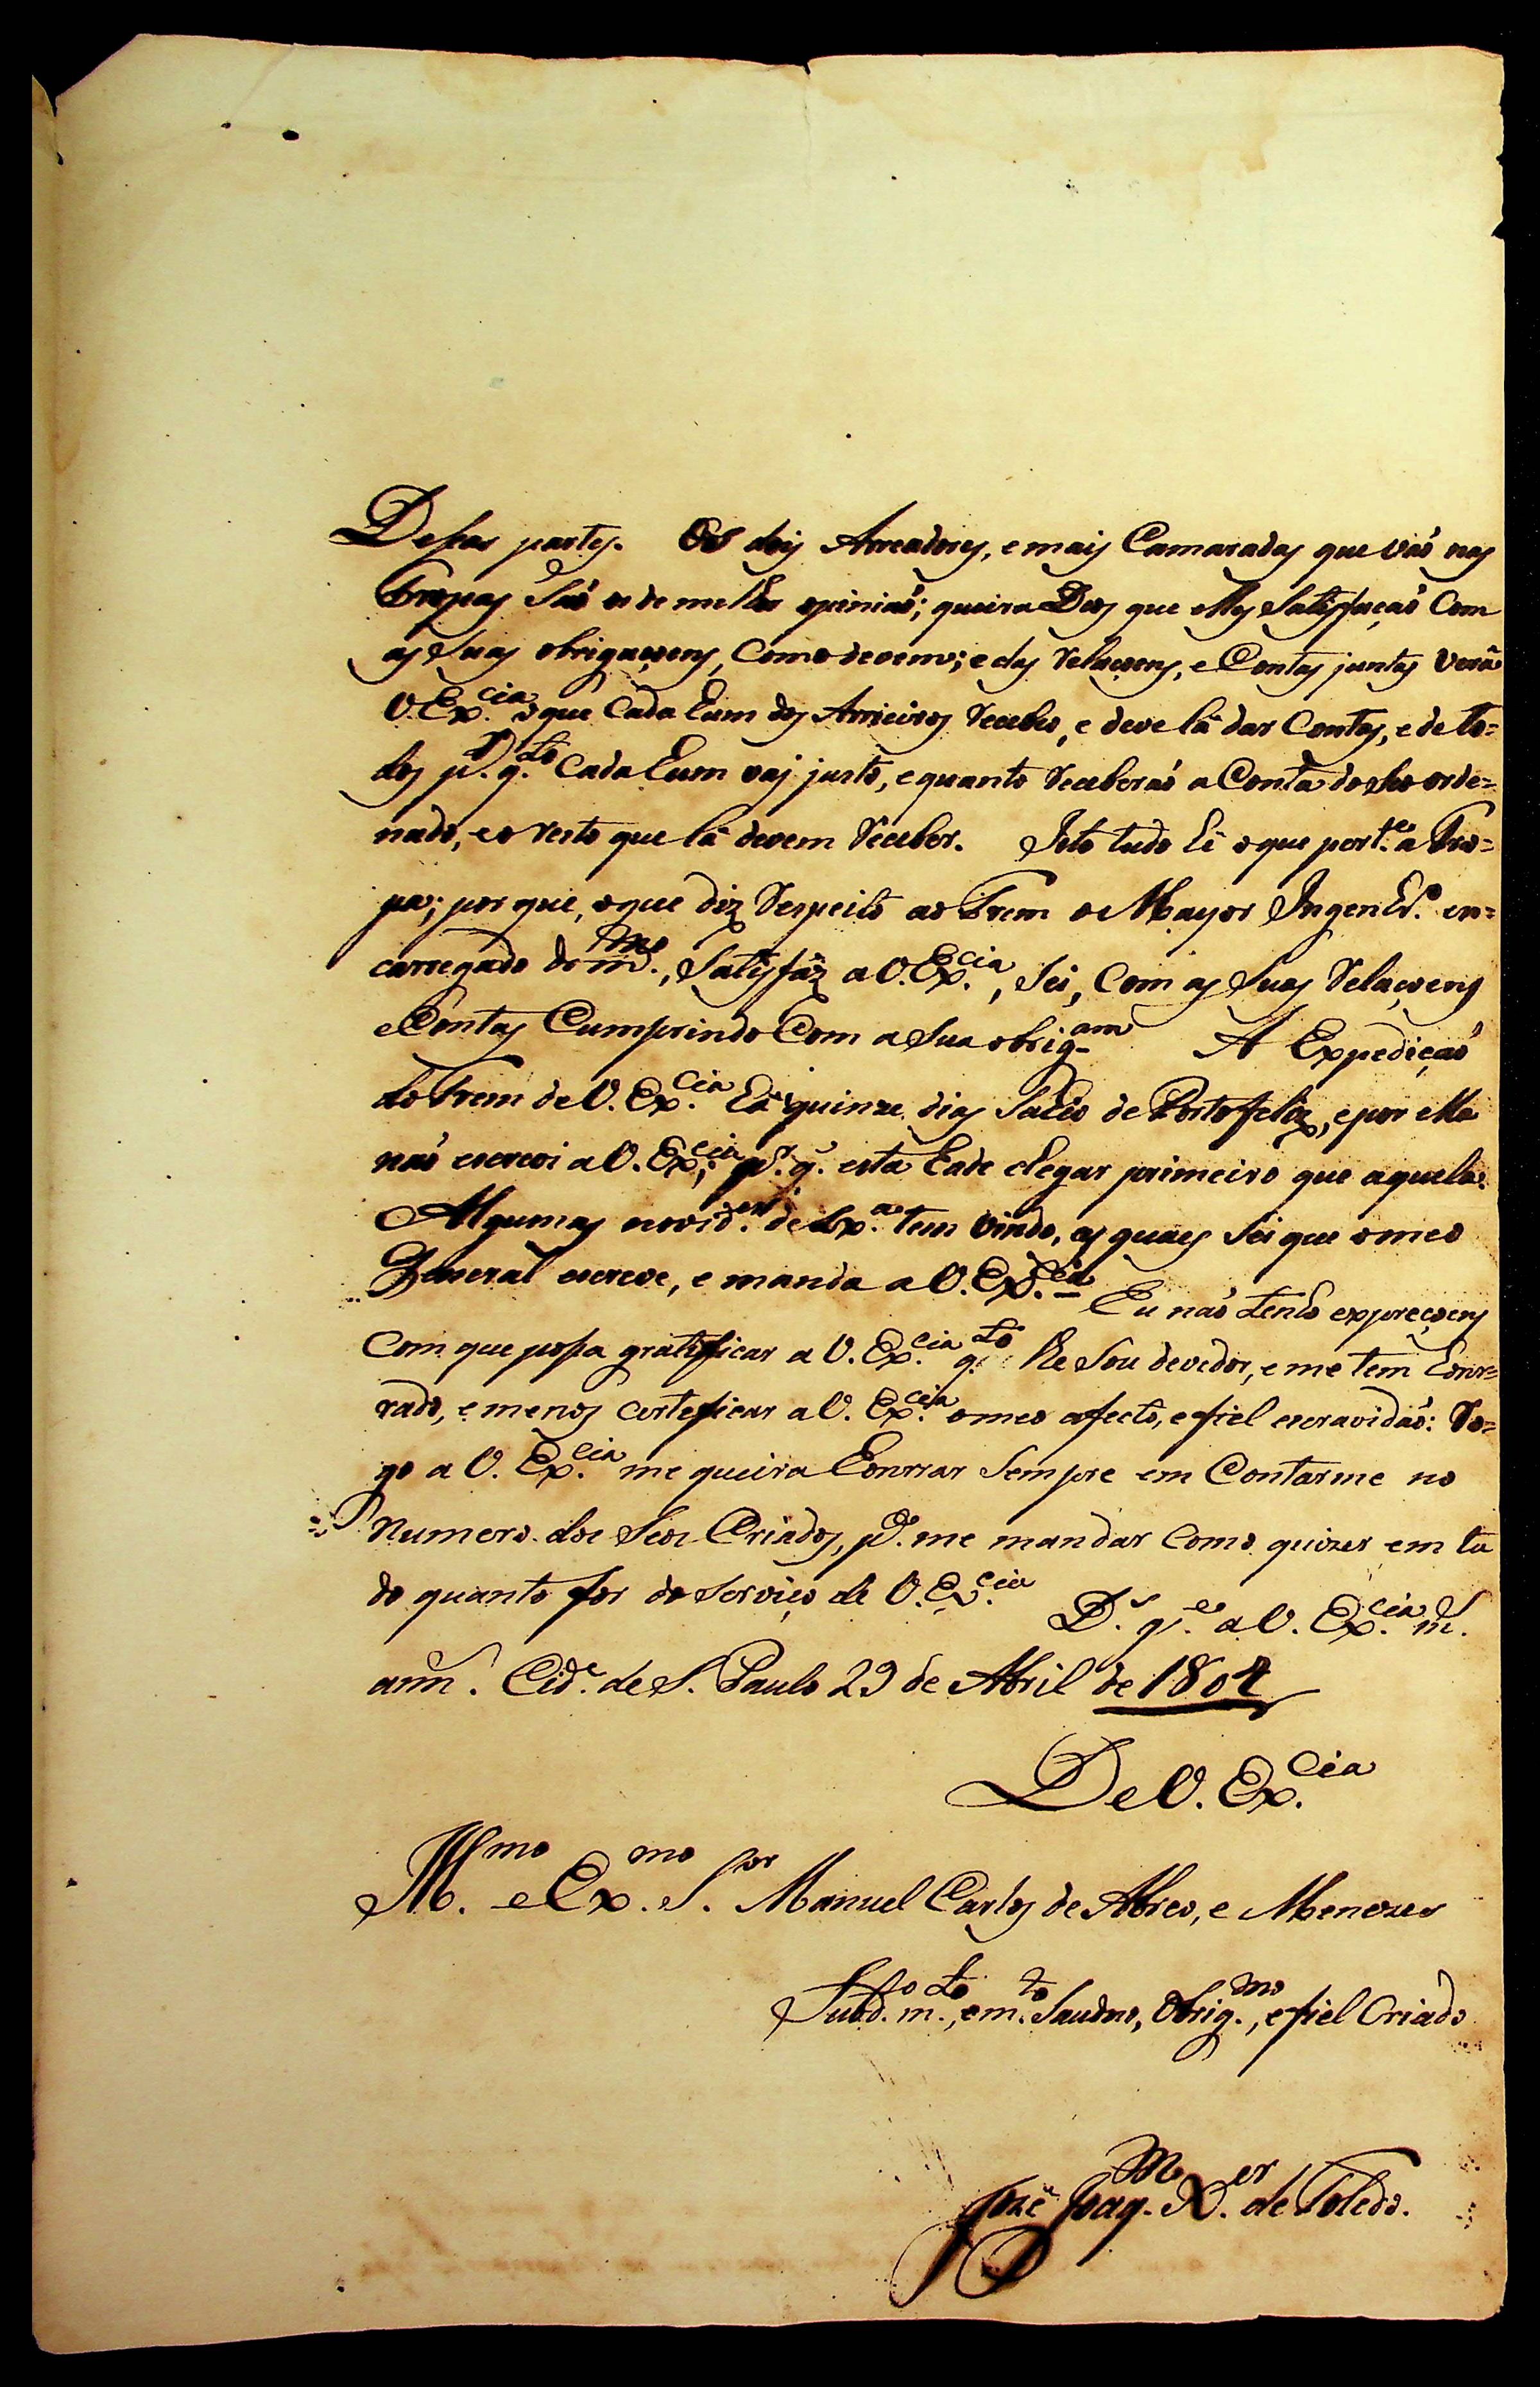 Dessas partes. Os dois Arreadores, e mais Camaradas que vaõ nas
Tropas Saõ os de melhor opiniaõ; queira Deos que elles Satisfaçaõ Com
as Suas obrigaçoens, Como devem; e das Relaçoens, e Contas juntas verâ
V. Ex.cia o que Cada hum dos Arrieiros Recebeo, e deve lâ dar Contas, e de to=
dos p.r q.to Cada hum vai justo, e quanto Receberaõ a Conta do Seo orde=
nado, e o resto que lâ devem Receber. Isto tudo hê o que pert.e a Tro=
pa; por que, o que diz Respeito ao Trem o Mayor Ingenhr.o en=
carregado do m.mo, Satisfâz a V. Ex.cia, Sei, Com as Suas Relaçoens
e Contas Cumprindo Com a Sua obrig.am A Expediçaõ
do Trem de V. Ex.cia hâ quinze dias Sahio de Portofeliz, e por ella
naõ escrevi a V. Ex.cia; p.r q. esta hade chegar primeiro que aquela.
Algumas novid.es de Lx.a tem vindo, as quaes Sei que o meo
General escreve, e manda a V. Ex.cia Eu naõ tenho expreçoens
Com que possa gratificar a V. Ex.cia q.to lhe Sou devedor, e me tem honr=
rado, e menos certeficar a V. Ex.cia o meo afecto, e fiel escravidaõ: Ro=
go a V. Ex.cia me queira honrrar Sempre em Contarme no
Numero dos Seos Criados, p.a me mandar Como quizer em tu
do quanto for do Serviço de V. Ex.cia D.s g.e a V. Ex.cia m.s
ann.s Cid.e de S. Paulo 29 de Abril de 1804
De V. Ex.cia
Ill.mo e Ex.mo S.or Manuel Carlos de Abreo, e Menezes
Subd.to m.to, e m.to Saudozo, Obrig.mo, e fiel Criado
Joze Joaq.m X.er de Toledo.